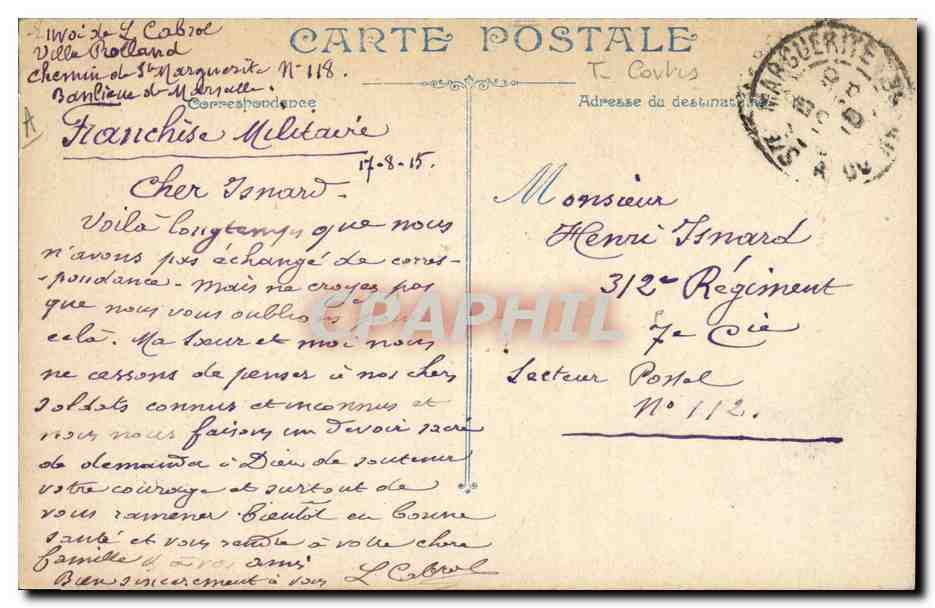 Envoi de L Cabrol
Villa Rolland
Chemin de Ste Marguerite N° 118.
Banlieue de Marseille.
CARTE POSTALE
Correspondance
Adresse du destinataire
Franchise Militaire
17-8-15.
Cher Isnard.
Voilà longtemps que nous
n'avons pas échangé de corres-
-pondance - mais ne croyez pas
que nous vous oublions pour
celà. Ma soeur et moi nous
ne cessons de penser à nos chers
soldats connus et inconnus et
nous nous faisons un devoir sacré
de demander à Dieu de soutenir
votre courage et surtout de
vous ramener bientôt en bonne
santé et vous rendre à votre chère
famille & à vos amis
Bien sincèrement à vous L Cabrol
Monsieur
Henri Isnard
312e Régiment
7e Cie
Secteur Postal
N° 112.
STE MARGUERITE
CPAPHIL
A